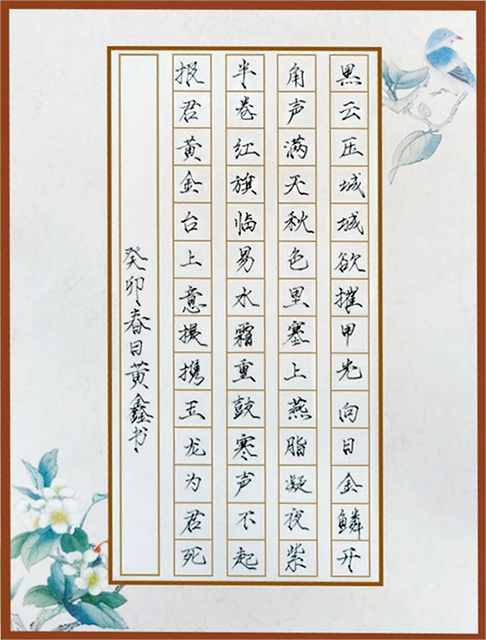 黑云压城城欲摧甲光向日金鳞开
角声满天秋色里塞上燕脂凝夜紫
半卷红旗临易水霜重鼓寒声不起
报君黄金台上意提携玉龙为君死
癸卯春日黄鑫书